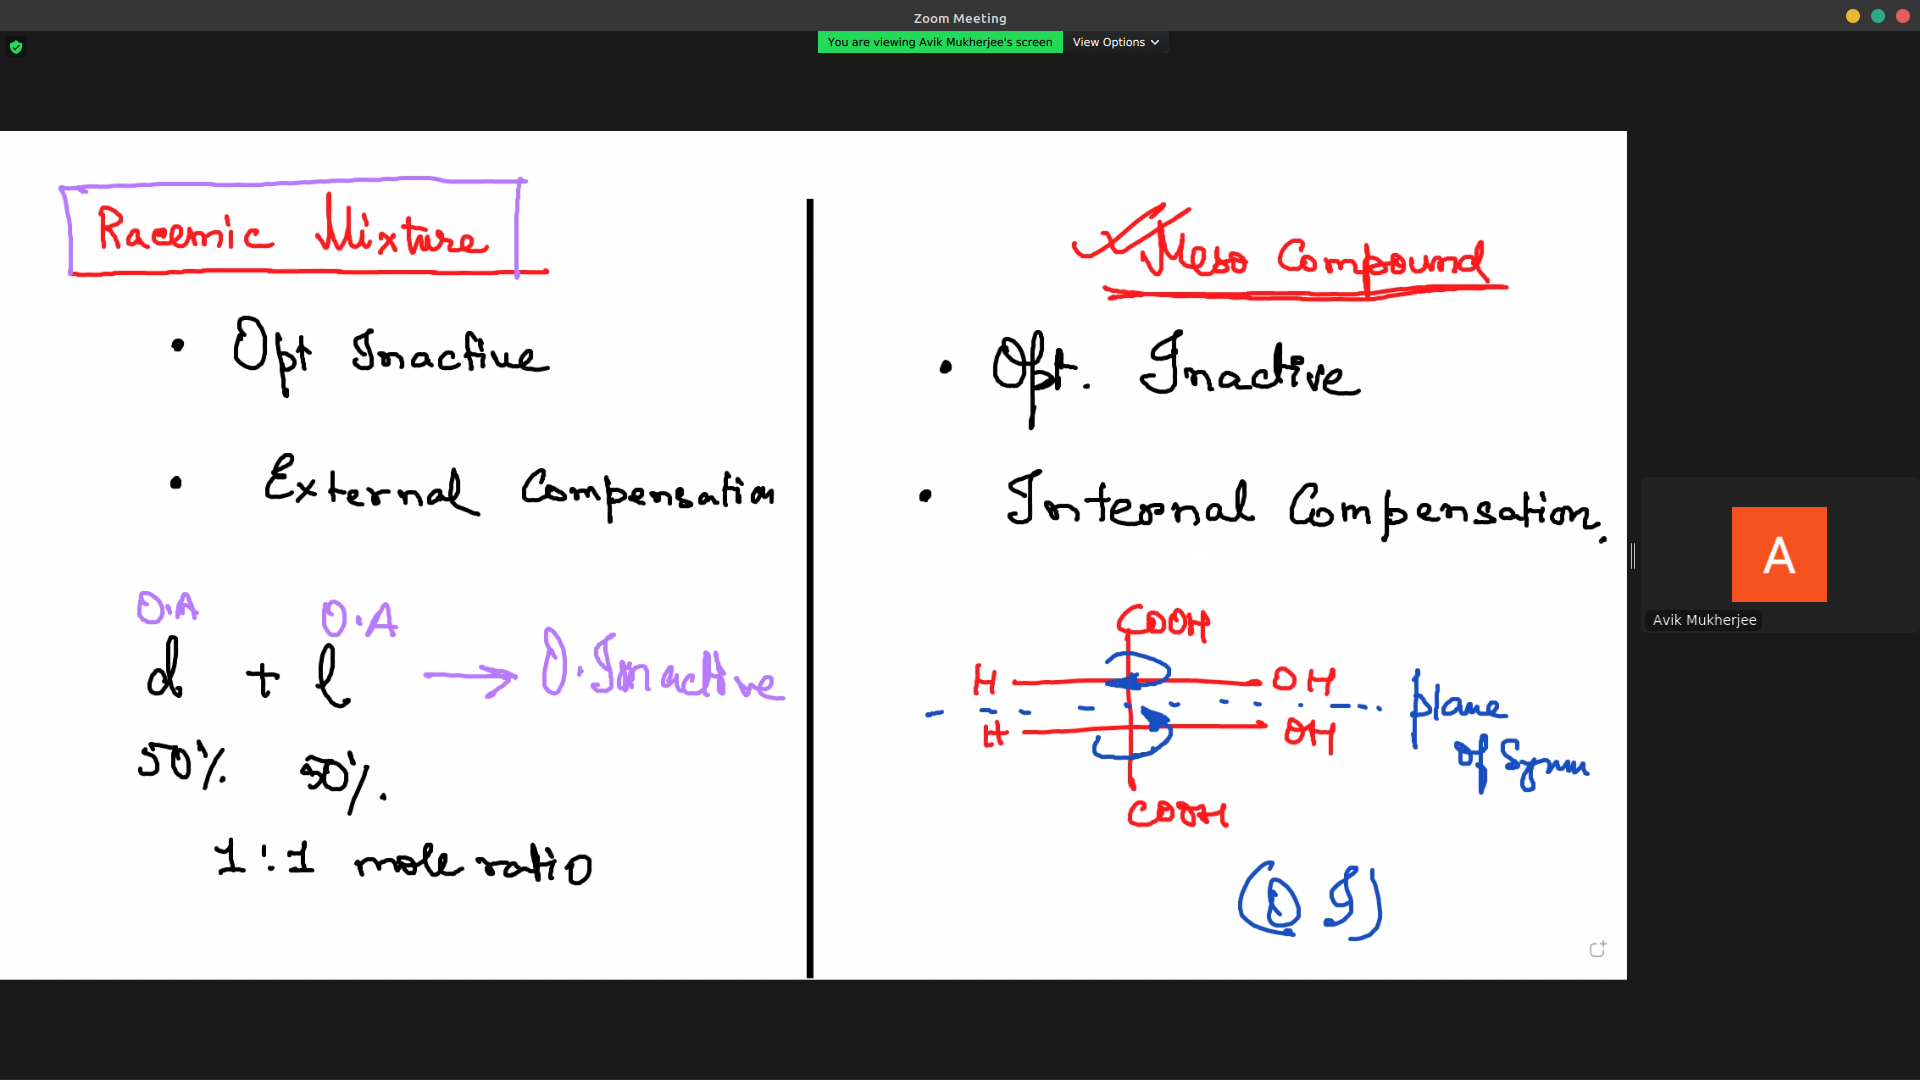 Zoom Meeting
You are viewing Avik Mukherjee's screen View Options
Racemic Mixture
• Opt Inactive
• External Compensation
O.A O.A
d + l → O.Inactive
50% 50%.
1:1 mole ratio
Meso Compound
• Opt. Inactive
• Internal Compensation.
COOH
H OH
plane
H OH
of Symm
COOH
(O I)
A
Avik Mukherjee